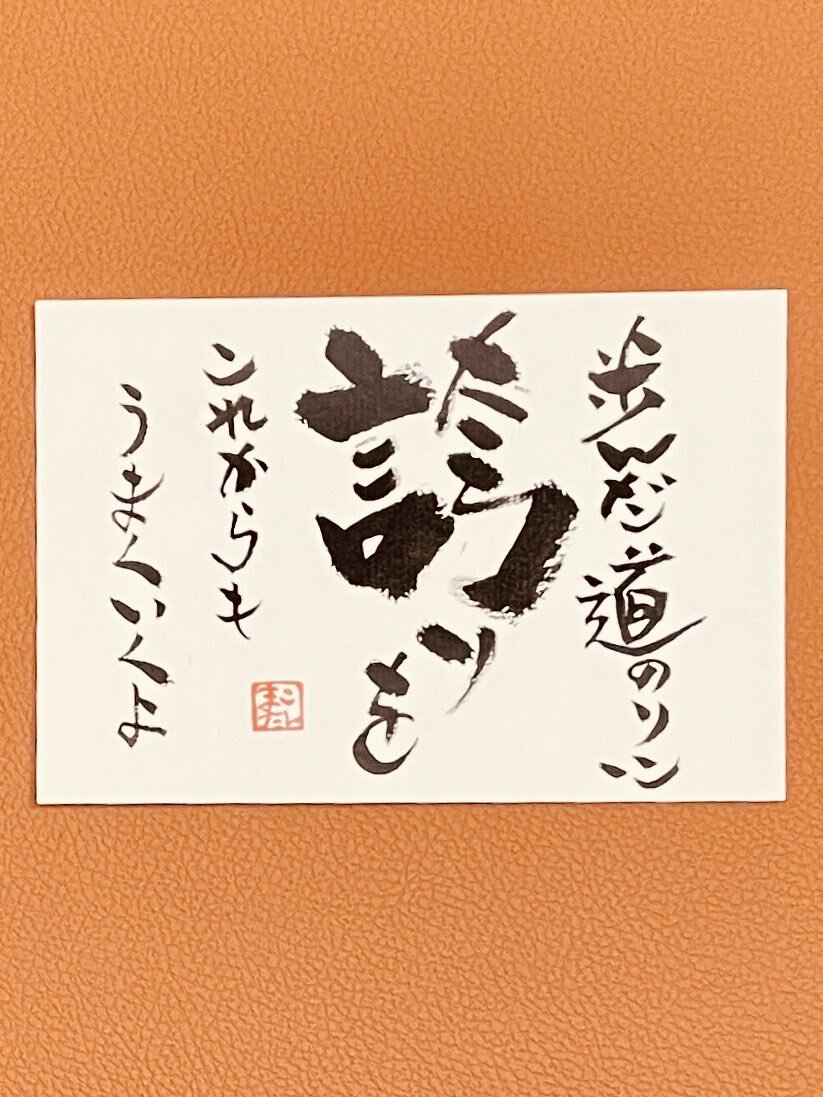 歩んだ道のりに
誇りを
これからも
うまくいくよ